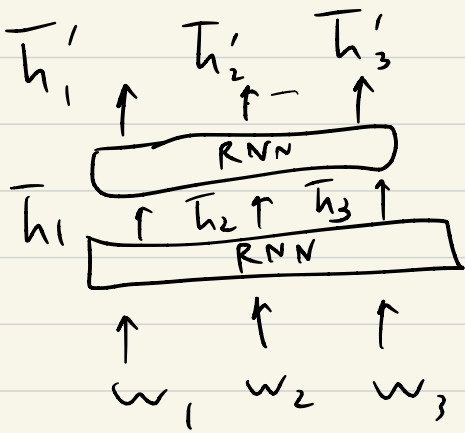 h̄₁' h̄₂' h̄₃'
RNN
h̄₁ h̄₂ h̄₃
RNN
w₁ w₂ w₃